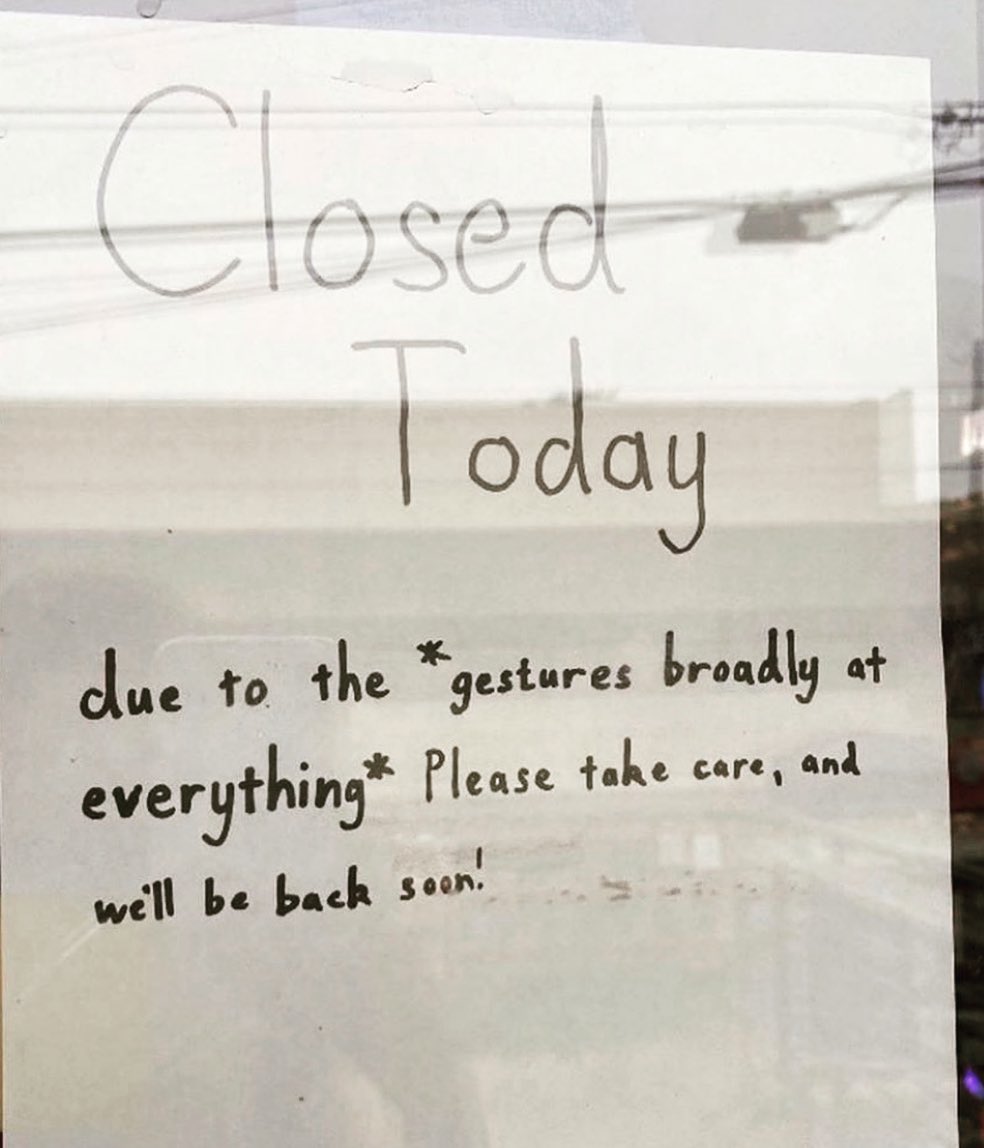 Closed
Today
due to the *gestures broadly at
everything* Please take care, and
we'll be back soon!